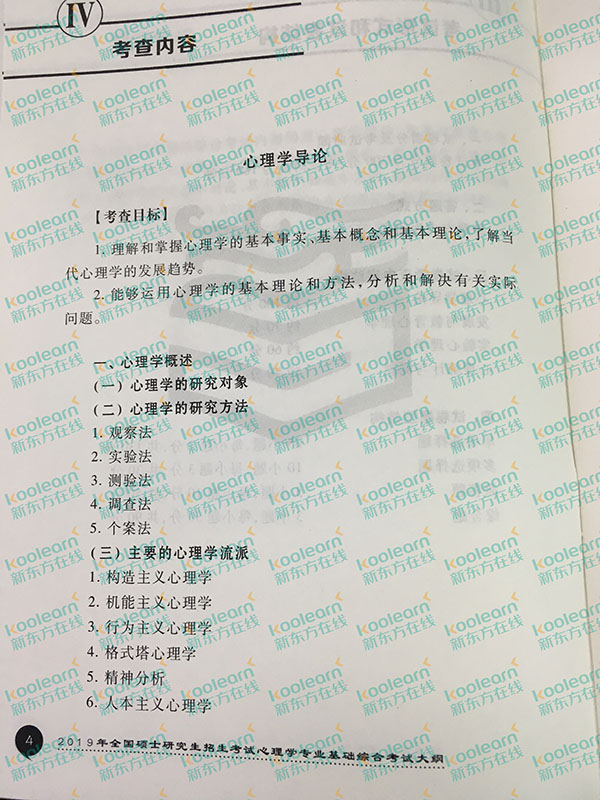 IV
考查内容
心理学导论
【考查目标】
1. 理解和掌握心理学的基本事实、基本概念和基本理论,了解当
代心理学的发展趋势。
2. 能够运用心理学的基本理论和方法,分析和解决有关实际
问题。
一、心理学概述
(一)心理学的研究对象
(二)心理学的研究方法
1. 观察法
2. 实验法
3. 测验法
4. 调查法
5. 个案法
(三)主要的心理学流派
1. 构造主义心理学
2. 机能主义心理学
3. 行为主义心理学
4. 格式塔心理学
5. 精神分析
6. 人本主义心理学
4 2019年全国硕士研究生招生考试心理学专业基础综合考试大纲
koolearn
新东方在线